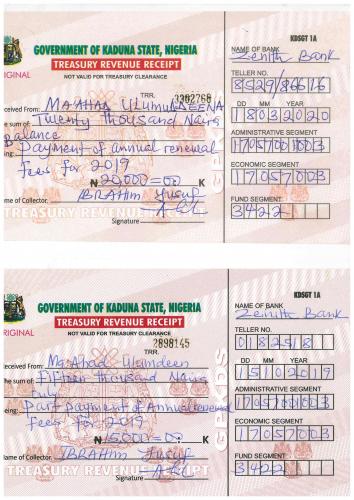 KDSGT 1A
GOVERNMENT OF KADUNA STATE, NIGERIA
TREASURY REVENUE RECEIPT
NOT VALID FOR TREASURY CLEARANCE
ORIGINAL
TRR. 3302768
eceived From: Ma'ahad Ulumuddeena
e sum of: Twenty thousand Naira
Balance
ing: payment of annual renewal
fees for 2019
₦ 20,000=00 K
ame of Collector. IBRAHIM Yusuf
TREASURY REVENUE
Signature
GPKDS
NAME OF BANK
Zenith Bank
TELLER NO.
8529/86616
DD MM YEAR
18032020
ADMINISTRATIVE SEGMENT
17057001003
ECONOMIC SEGMENT
17057003
FUND SEGMENT
3422
KDSGT 1A
GOVERNMENT OF KADUNA STATE, NIGERIA
TREASURY REVENUE RECEIPT
NOT VALID FOR TREASURY CLEARANCE
RIGINAL
2898145
TRR.
eceived From: Ma'ahad Ulumdeen
he sum of: Fifteen thousand Naira
only
eing: Part payment of Annual renewal
fees for 2019
₦ 15,000=00 K
ame of Collector IBRAHIM Yusuf
TREASURY REVENUE RECEIPT
Signature
GPKDS
NAME OF BANK
Zenith Bank
TELLER NO.
DD MM YEAR
15102019
ADMINISTRATIVE SEGMENT
ECONOMIC SEGMENT
17057003
FUND SEGMENT
3422